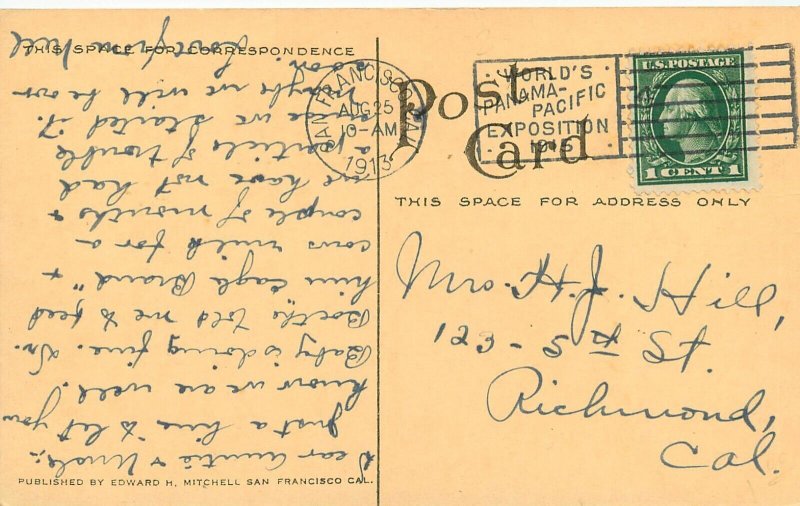 THIS SPACE FOR CORRESPONDENCE
Dear Auntie & Uncle:-
Just a line to let you
know we are well.
Baby is doing fine. Dr.
told me to feed
him "Eagle Brand" &
cows milk for a
couple of months &
we have not had
a particle of trouble
since we started it.
Maybe we will be over
soon.
Love from Nell
PUBLISHED BY EDWARD H. MITCHELL SAN FRANCISCO CAL.
Post Card
SAN FRANCISCO, CAL.
AUG 25
10-AM
1913
WORLD'S
PANAMA-
PACIFIC
EXPOSITION
1915
U.S. POSTAGE
1 CENT 1
THIS SPACE FOR ADDRESS ONLY
Mrs. H. J. Hill,
123 - 5th St.
Richmond,
Cal.